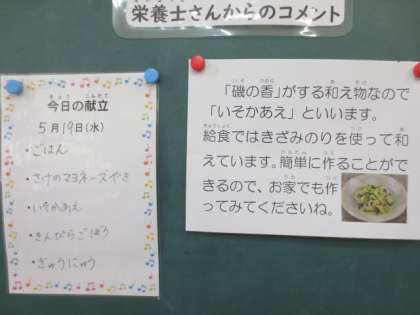 栄養士さんからのコメント
今日の献立
5月19日(水)
・ごはん
・さけのマヨネーズやき
・いそかあえ
・きんぴらごぼう
・ぎゅうにゅう
「磯の香」がする和え物なので
「いそかあえ」といいます。
給食ではきざみのりを使って和
えています。簡単に作ることがで
きるので、お家でも作
ってみてくださいね。